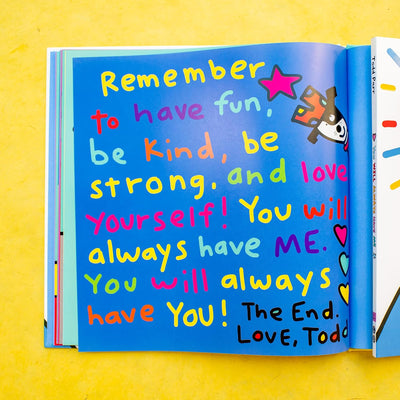 Remember
to have fun,
be kind, be
strong, and love
yourself! You will
always have ME.
You will always
have You!
The End.
Love, Todd
Todd Parr